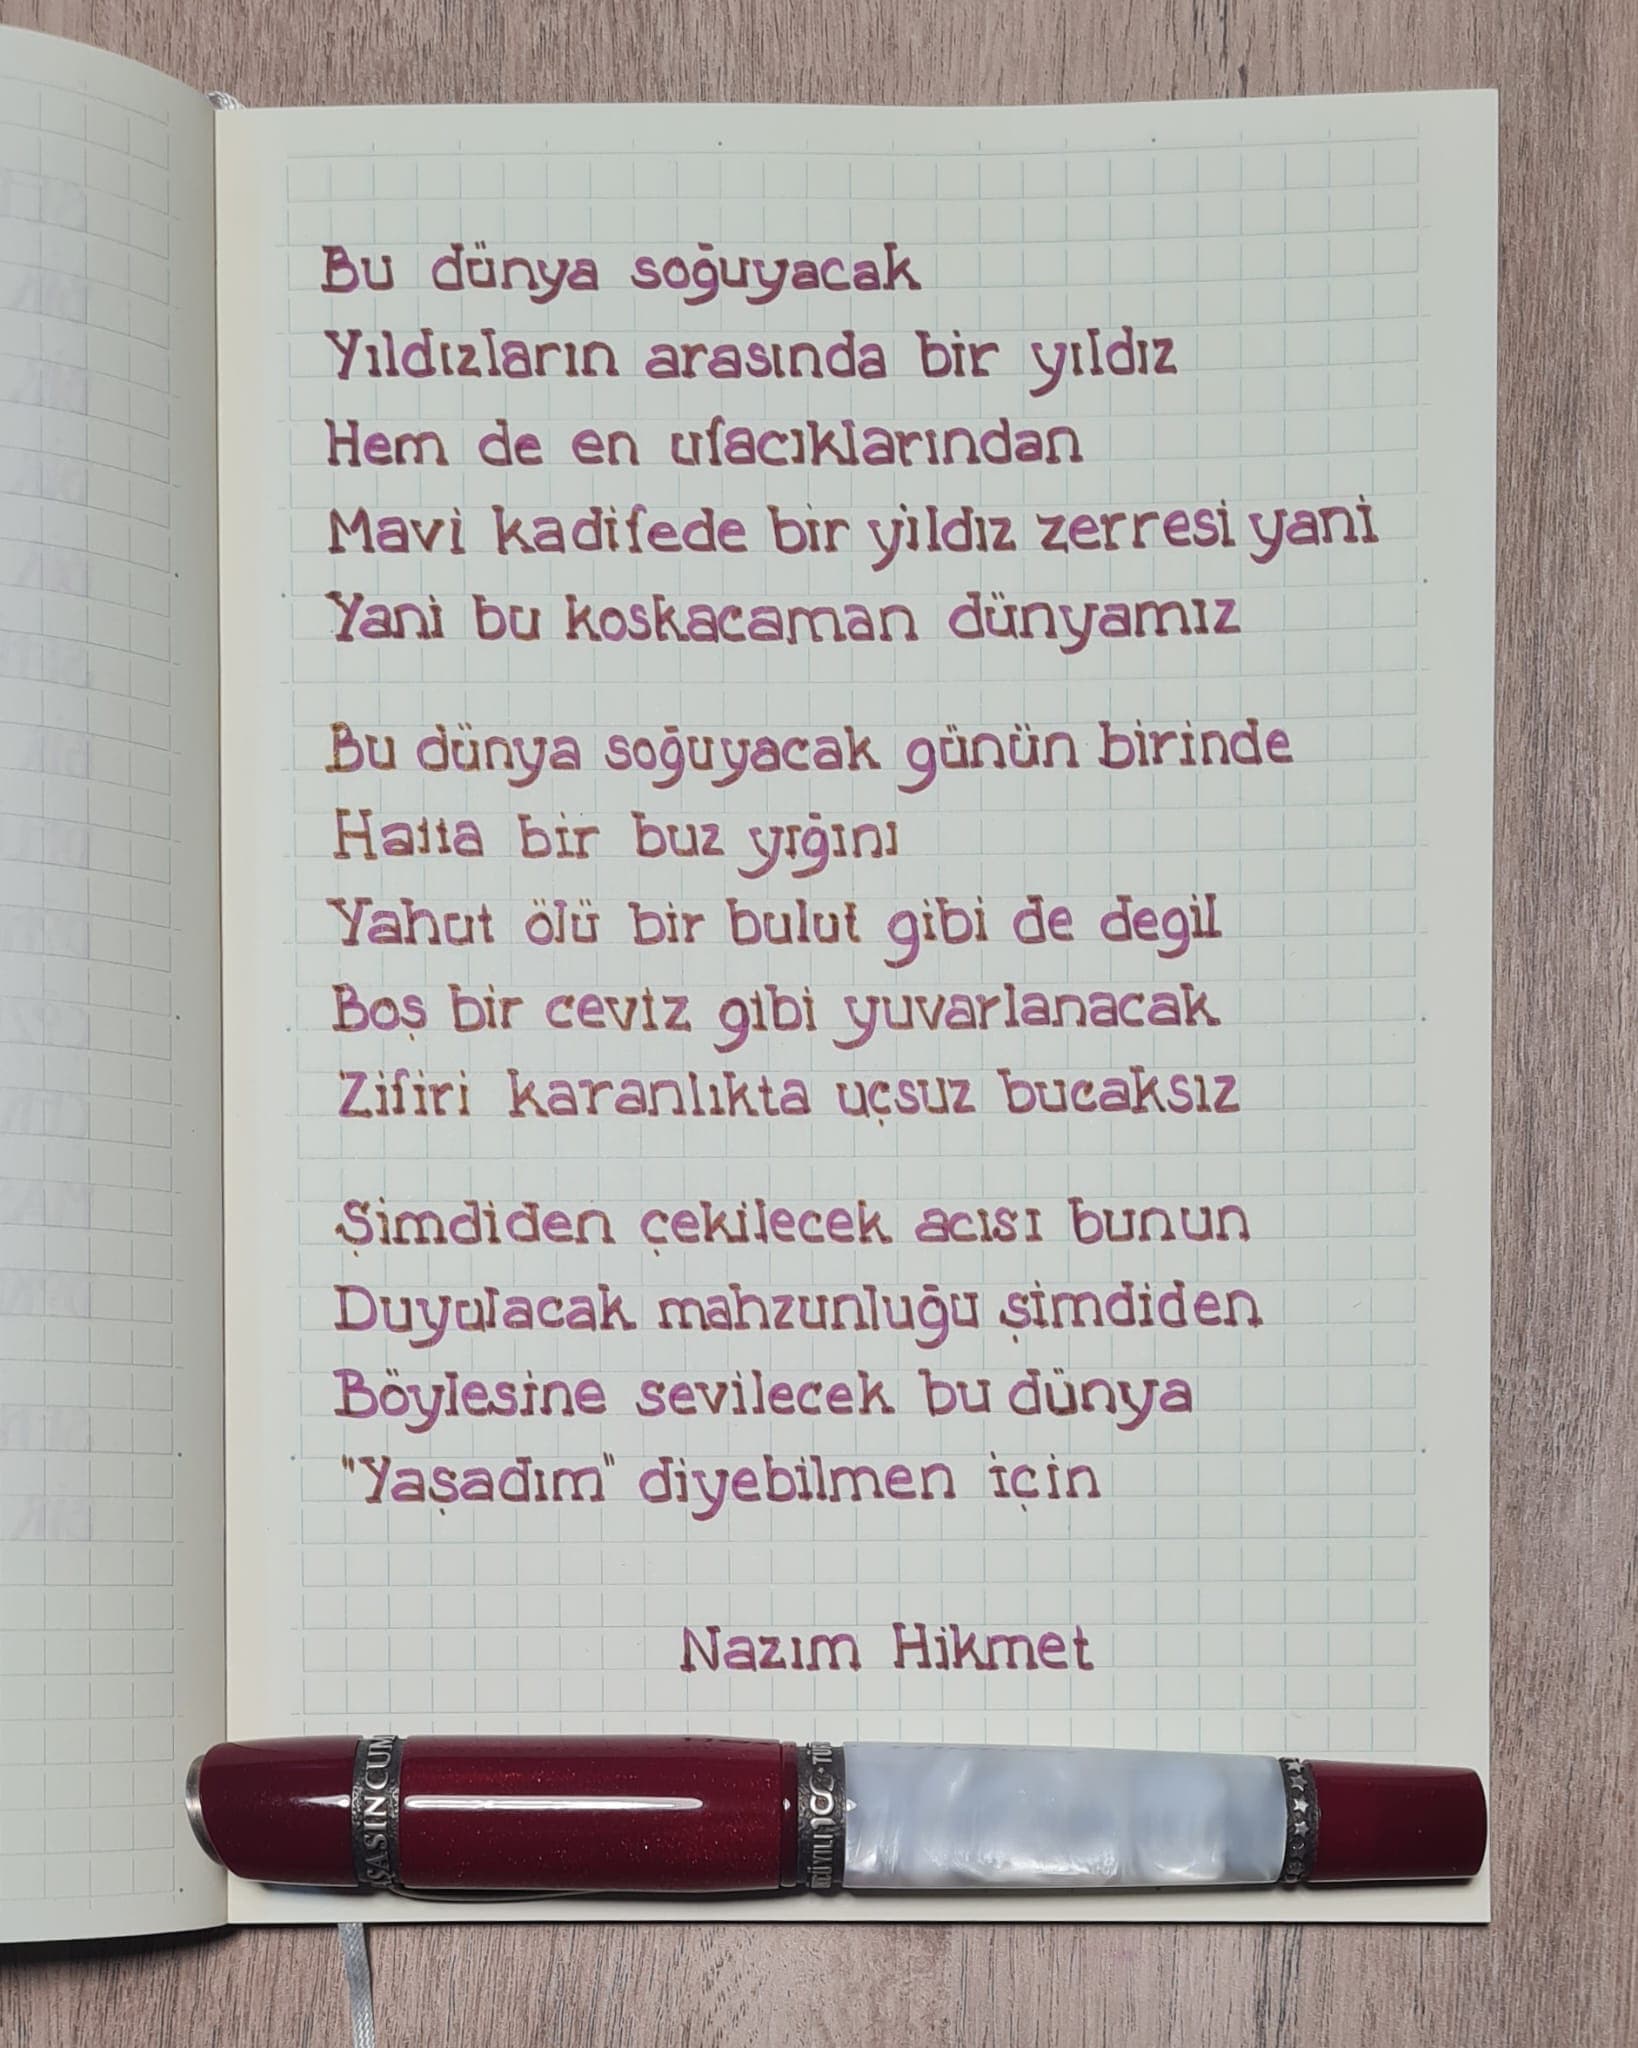 Bu dünya soğuyacak
Yıldızların arasında bir yıldız
Hem de en ufacıklarından
Mavi kadifede bir yıldız zerresi yani
Yani bu koskacaman dünyamız
Bu dünya soğuyacak günün birinde
Hatta bir buz yığını
Yahut ölü bir bulut gibi de degil
Boş bir ceviz gibi yuvarlanacak
Zifiri karanlıkta uçsuz bucaksız
Şimdiden çekilecek acısı bunun
Duyulacak mahzunluğu şimdiden
Böylesine sevilecek bu dünya
"Yaşadım" diyebilmen için
Nazım Hikmet
ŞASIN CUM
100